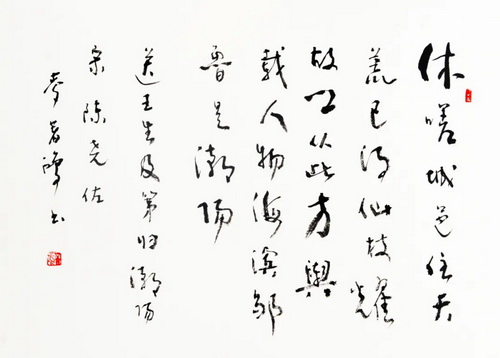 休嗟城邑住天
荒已得仙枝耀
故乡从此方舆
载人物海滨邹
鲁是潮阳
送王生及第归潮阳
宋陈尧佐
书